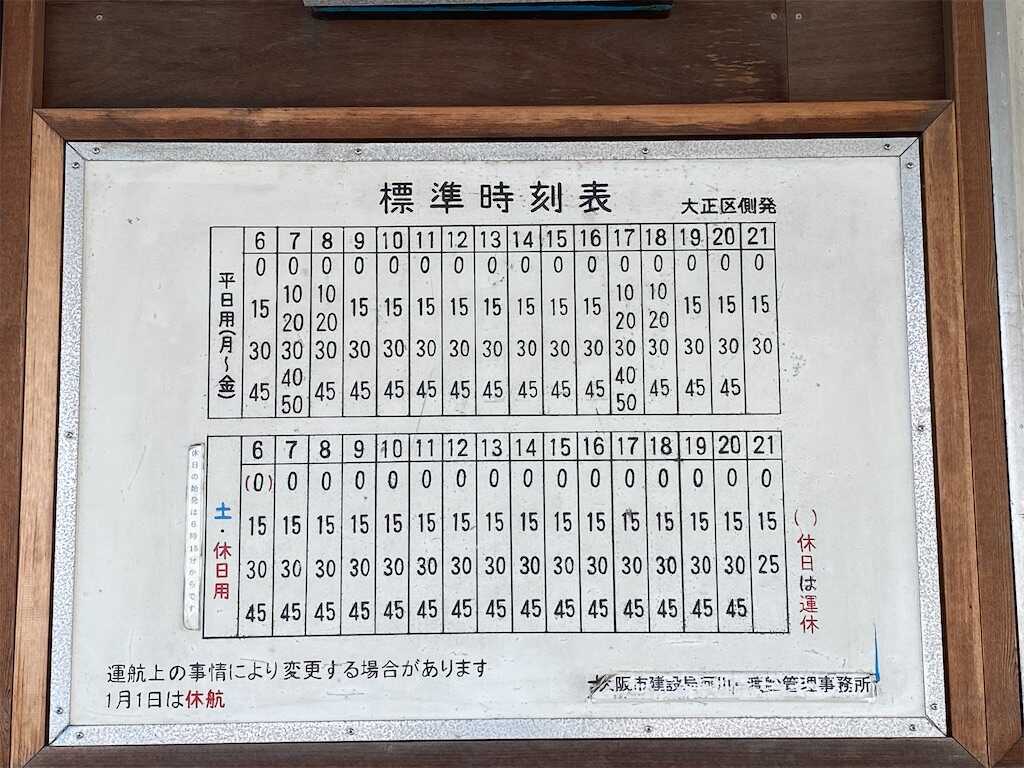 標準時刻表 大正区側発
平日用(月~金)
6 7 8 9 10 11 12 13 14 15 16 17 18 19 20 21
0 0 0 0 0 0 0 0 0 0 0 0 0 0 0 0
10 10 10 10
15 15 15 15 15 15 15 15 15 15 15 15
20 20 20 20
30 30 30 30 30 30 30 30 30 30 30 30 30 30 30 30
40 40
45 45 45 45 45 45 45 45 45 45 45 45 45
50 50
土・休日用
休日の始発は6時15分からです
6 7 8 9 10 11 12 13 14 15 16 17 18 19 20 21
(0) 0 0 0 0 0 0 0 0 0 0 0 0 0 0 0
15 15 15 15 15 15 15 15 15 15 15 15 15 15 15 15
30 30 30 30 30 30 30 30 30 30 30 30 30 30 30 25
45 45 45 45 45 45 45 45 45 45 45 45 45 45 45
( )休日は運休
運航上の事情により変更する場合があります
1月1日は休航
大阪市建設局河川・渡船管理事務所